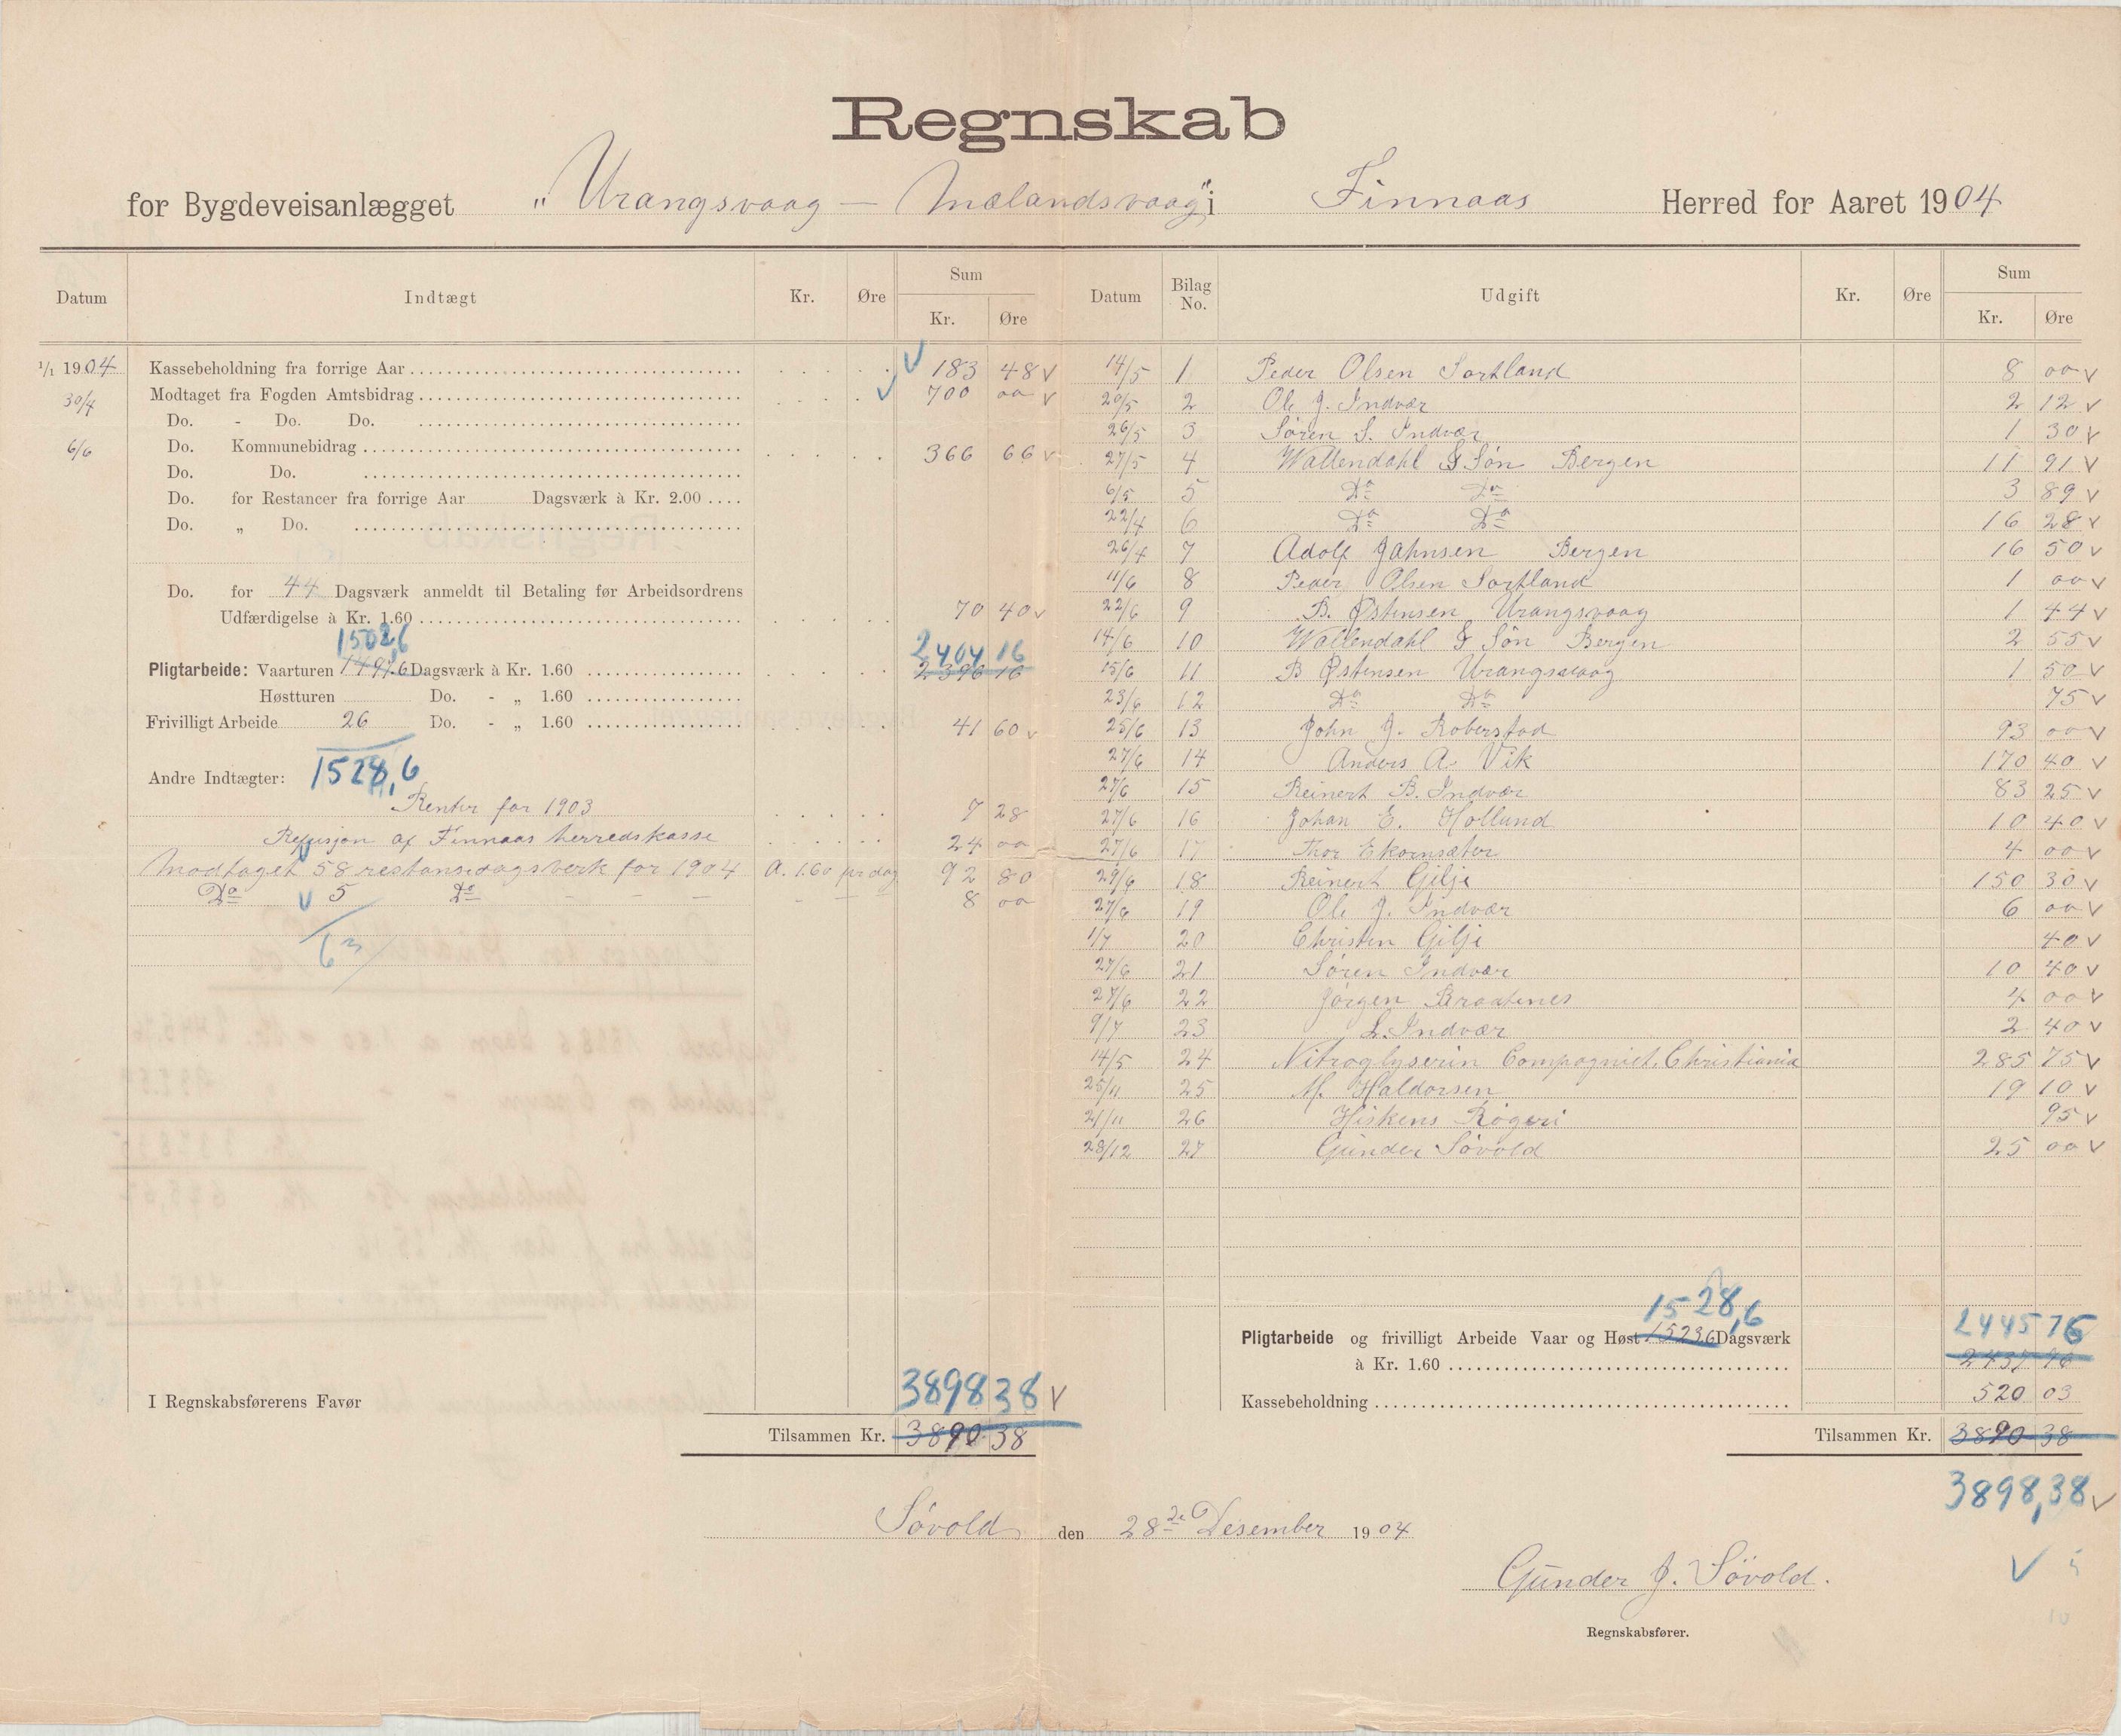 Regnskab
for Bygdeveisanlægget „Urangsvaag — Mælandsvaag" i Finnaas Herred for Aaret 1904
Datum Indtægt Kr. Øre Sum Kr. Øre
1/1 1904 Kassebeholdning fra forrige Aar 183 48
30/4 Modtaget fra Fogden Amtsbidrag 700 00
Do. - Do. Do.
6/6 Do. Kommunebidrag 366 66
Do. Do.
Do. for Restancer fra forrige Aar Dagsværk à Kr. 2.00
Do. „ Do.
Do. for 44 Dagsværk anmeldt til Betaling før Arbeidsordrens
Udfærdigelse à Kr. 1.60 70 40
1502,6 2404 16
Pligtarbeide: Vaarturen 1497.6 Dagsværk à Kr. 1.60 2396 16
Høstturen Do. - „ 1.60
Frivilligt Arbeide 26 Do. - „ 1.60 41 60
1528,6
Andre Indtægter:
Renter for 1903 7 28
Refusjon af Finnaas herredskasse 24 00
Modtaget 58 restansedagsverk for 1904 A. 1.60 pr dag 92 80
Do 5 Do 8 00
63
I Regnskabsførerens Favør
3898 38
Tilsammen Kr. 3890 38
Datum Bilag No. Udgift Kr. Øre Sum Kr. Øre
14/5 1 Peder Olsen Sortland 8 00
20/5 2 Ole J. Indvær 2 12
26/5 3 Søren S. Indvær 1 30
27/5 4 Wallendahl & Søn Bergen 11 91
6/5 5 Do Do 3 89
22/4 6 Do Do 16 28
26/4 7 Adolf Jahnsen Bergen 16 50
11/6 8 Peder Olsen Sortland 1 00
22/6 9 B. Østensen Urangsvaag 1 44
14/6 10 Wallendahl & Søn Bergen 2 55
15/6 11 B Østensen Urangsvaag 1 50
23/6 12 Do Do 75
25/6 13 John J. Roberstad 93 00
27/6 14 Anders A. Vik 170 40
27/6 15 Reinert B. Indvær 83 25
27/6 16 Johan E. Hollund 10 40
27/6 17 Thor Ekornsæter 4 00
29/6 18 Reinert Gilje 150 30
27/6 19 Ole J. Indvær 6 00
1/7 20 Christen Gilje 40
27/6 21 Søren Indvær 10 40
27/6 22 Jørgen Braatenes 4 00
9/7 23 L. Indvær 2 40
14/5 24 Nitroglyserin Compagniet. Christiania 285 75
25/11 25 M. Haldorsen 19 10
21/11 26 Hiskens Røgeri 95
28/12 27 Gunder Søvold 25 00
1528,6 2445 76
Pligtarbeide og frivilligt Arbeide Vaar og Høst 1523.6 Dagsværk
à Kr. 1.60 2437 76
Kassebeholdning 520 03
Tilsammen Kr. 3890 38
3898,38
Søvold den 28de Desember 1904
Gunder J. Søvold.
Regnskabsfører.